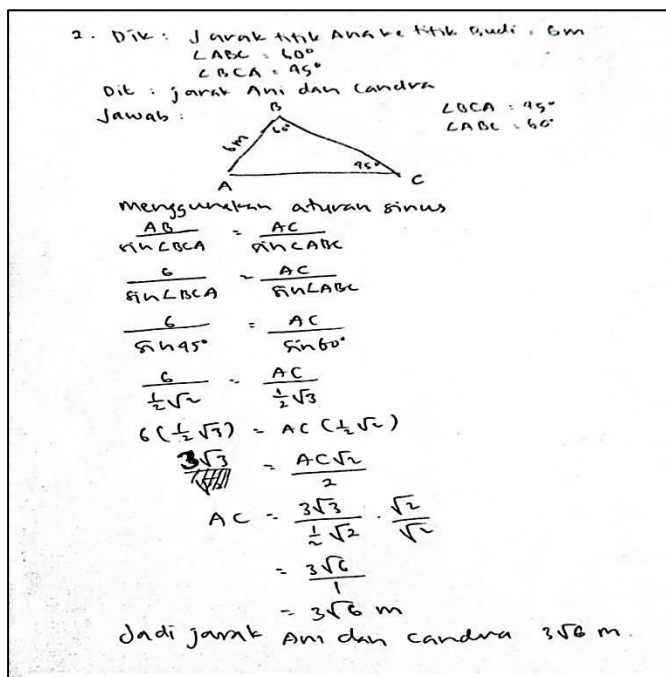 2. Dik : Jarak titik Ana ke titik Budi = 6m
∠ABC = 60°
∠BCA = 45°
Dit : jarak Ani dan Candra
Jawab :
B
60°
6m
45°
A
C
∠BCA = 45°
∠ABC = 60°
menggunakan aturan sinus
AB / sin∠BCA = AC / sin∠ABC
6 / sin∠BCA = AC / sin∠ABC
6 / sin45° = AC / sin60°
6 / ½√2 = AC / ½√3
6(½√3) = AC(½√2)
3√3 = AC√2 / 2
AC = 3√3 / ½√2 . √2 / √2
= 3√6 / 1
= 3√6 m
Jadi jarak Ani dan Candra 3√6 m.